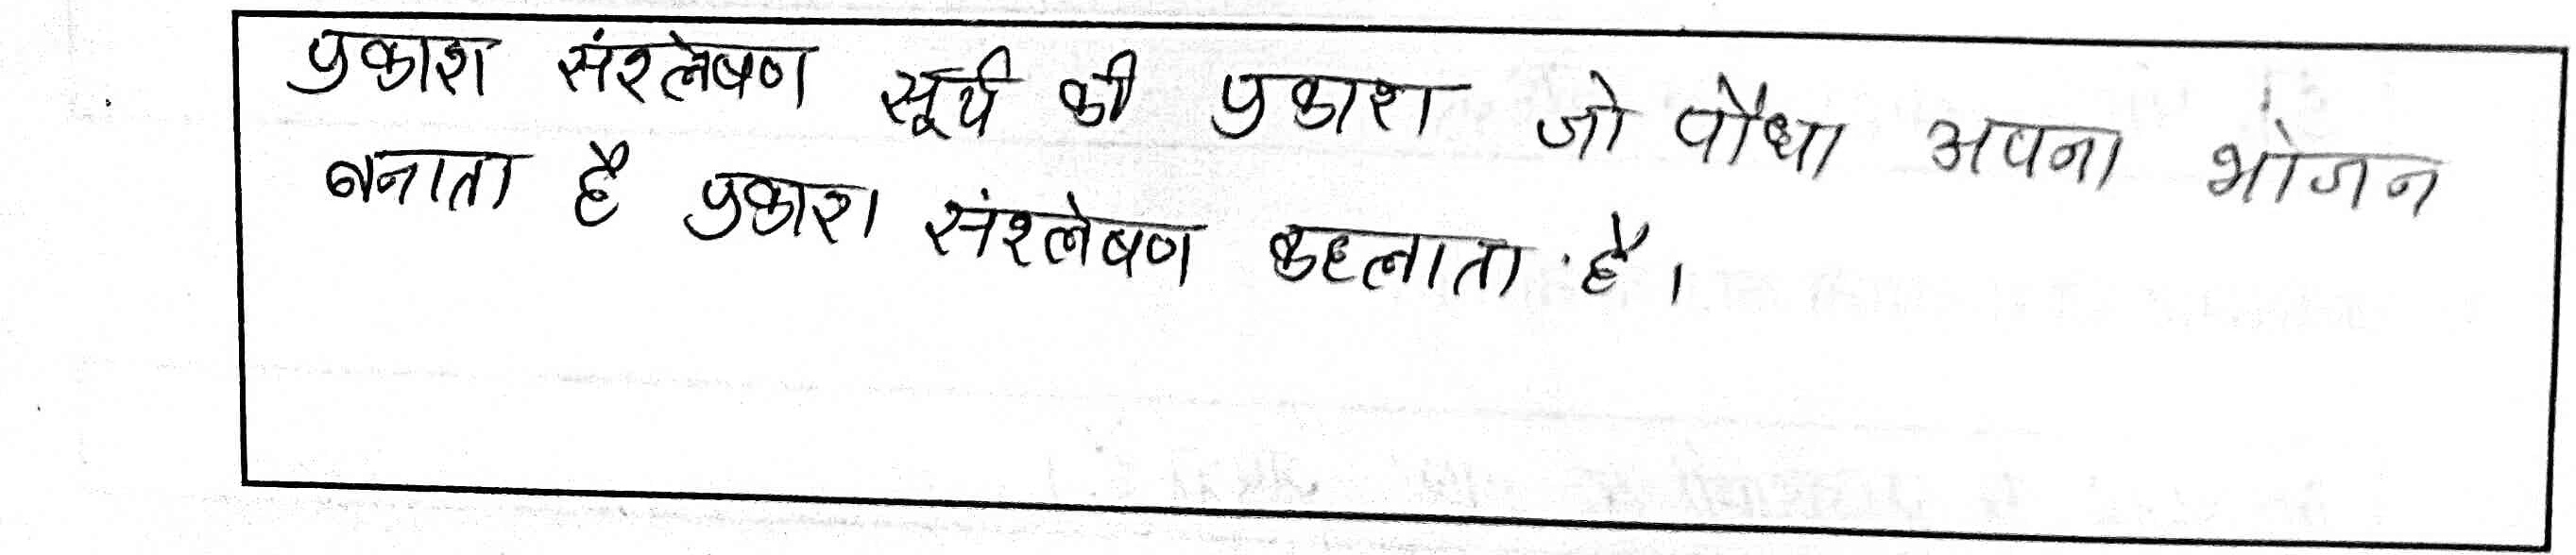 प्रकाश संश्लेषण सूर्य की प्रकाश जो पौधा अपना भोजन
बनाता है प्रकाश संश्लेषण कहलाता है।